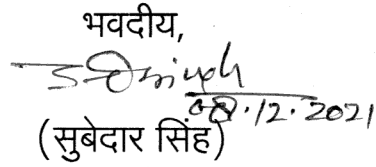 भवदीय,
08.12.2021
(सुबेदार सिंह)